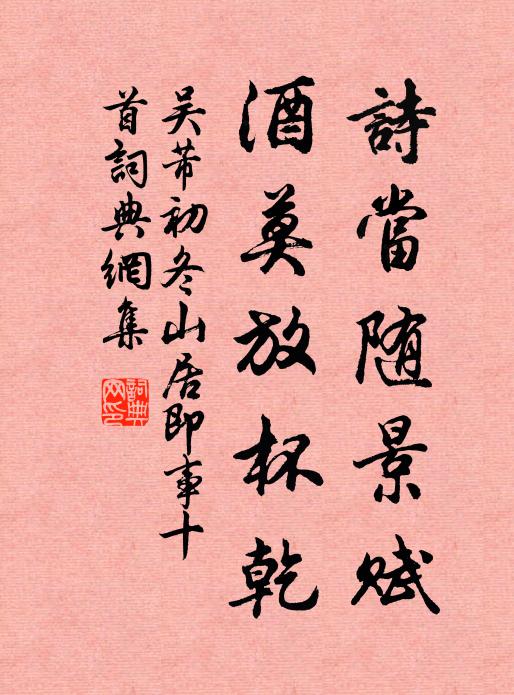 詩當随景賦
酒莫放杯乾
吴芾初冬山居即事十
首詞典網集
詞典
网印